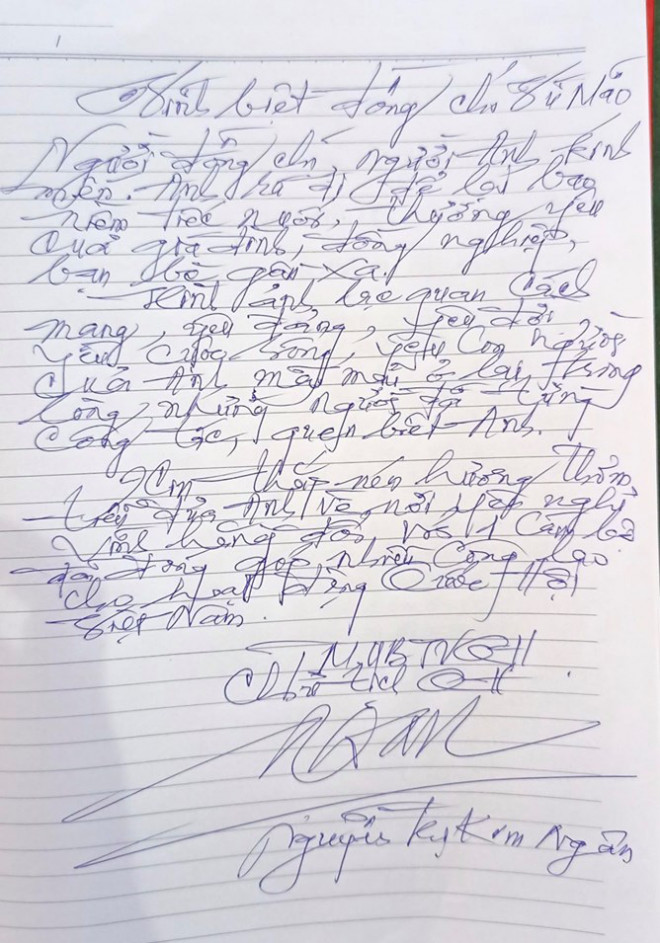 1
Vĩnh biệt đồng chí Vũ Mão
Người đồng chí, người Anh kính
mến. Anh ra đi để lại bao
niềm tiếc nuối, thương yêu
của gia đình, đồng nghiệp,
bạn bè gần xa.
Hình ảnh lạc quan Cách
mạng, yêu Đảng, yêu đời,
yêu cuộc sống, yêu con người
của Anh mãi mãi ở lại trong
lòng những người đã từng
công tác, quen biết Anh.
Xin thắp nén hương thơm
tiễn đưa Anh về nơi yên nghỉ
vĩnh hằng đối với 1 Cán bộ
đã đóng góp nhiều Công lao
cho hoạt động Quốc Hội
Việt Nam.
TM UBTVQH
Chủ tịch QH
Ngân
Nguyễn Thị Kim Ngân